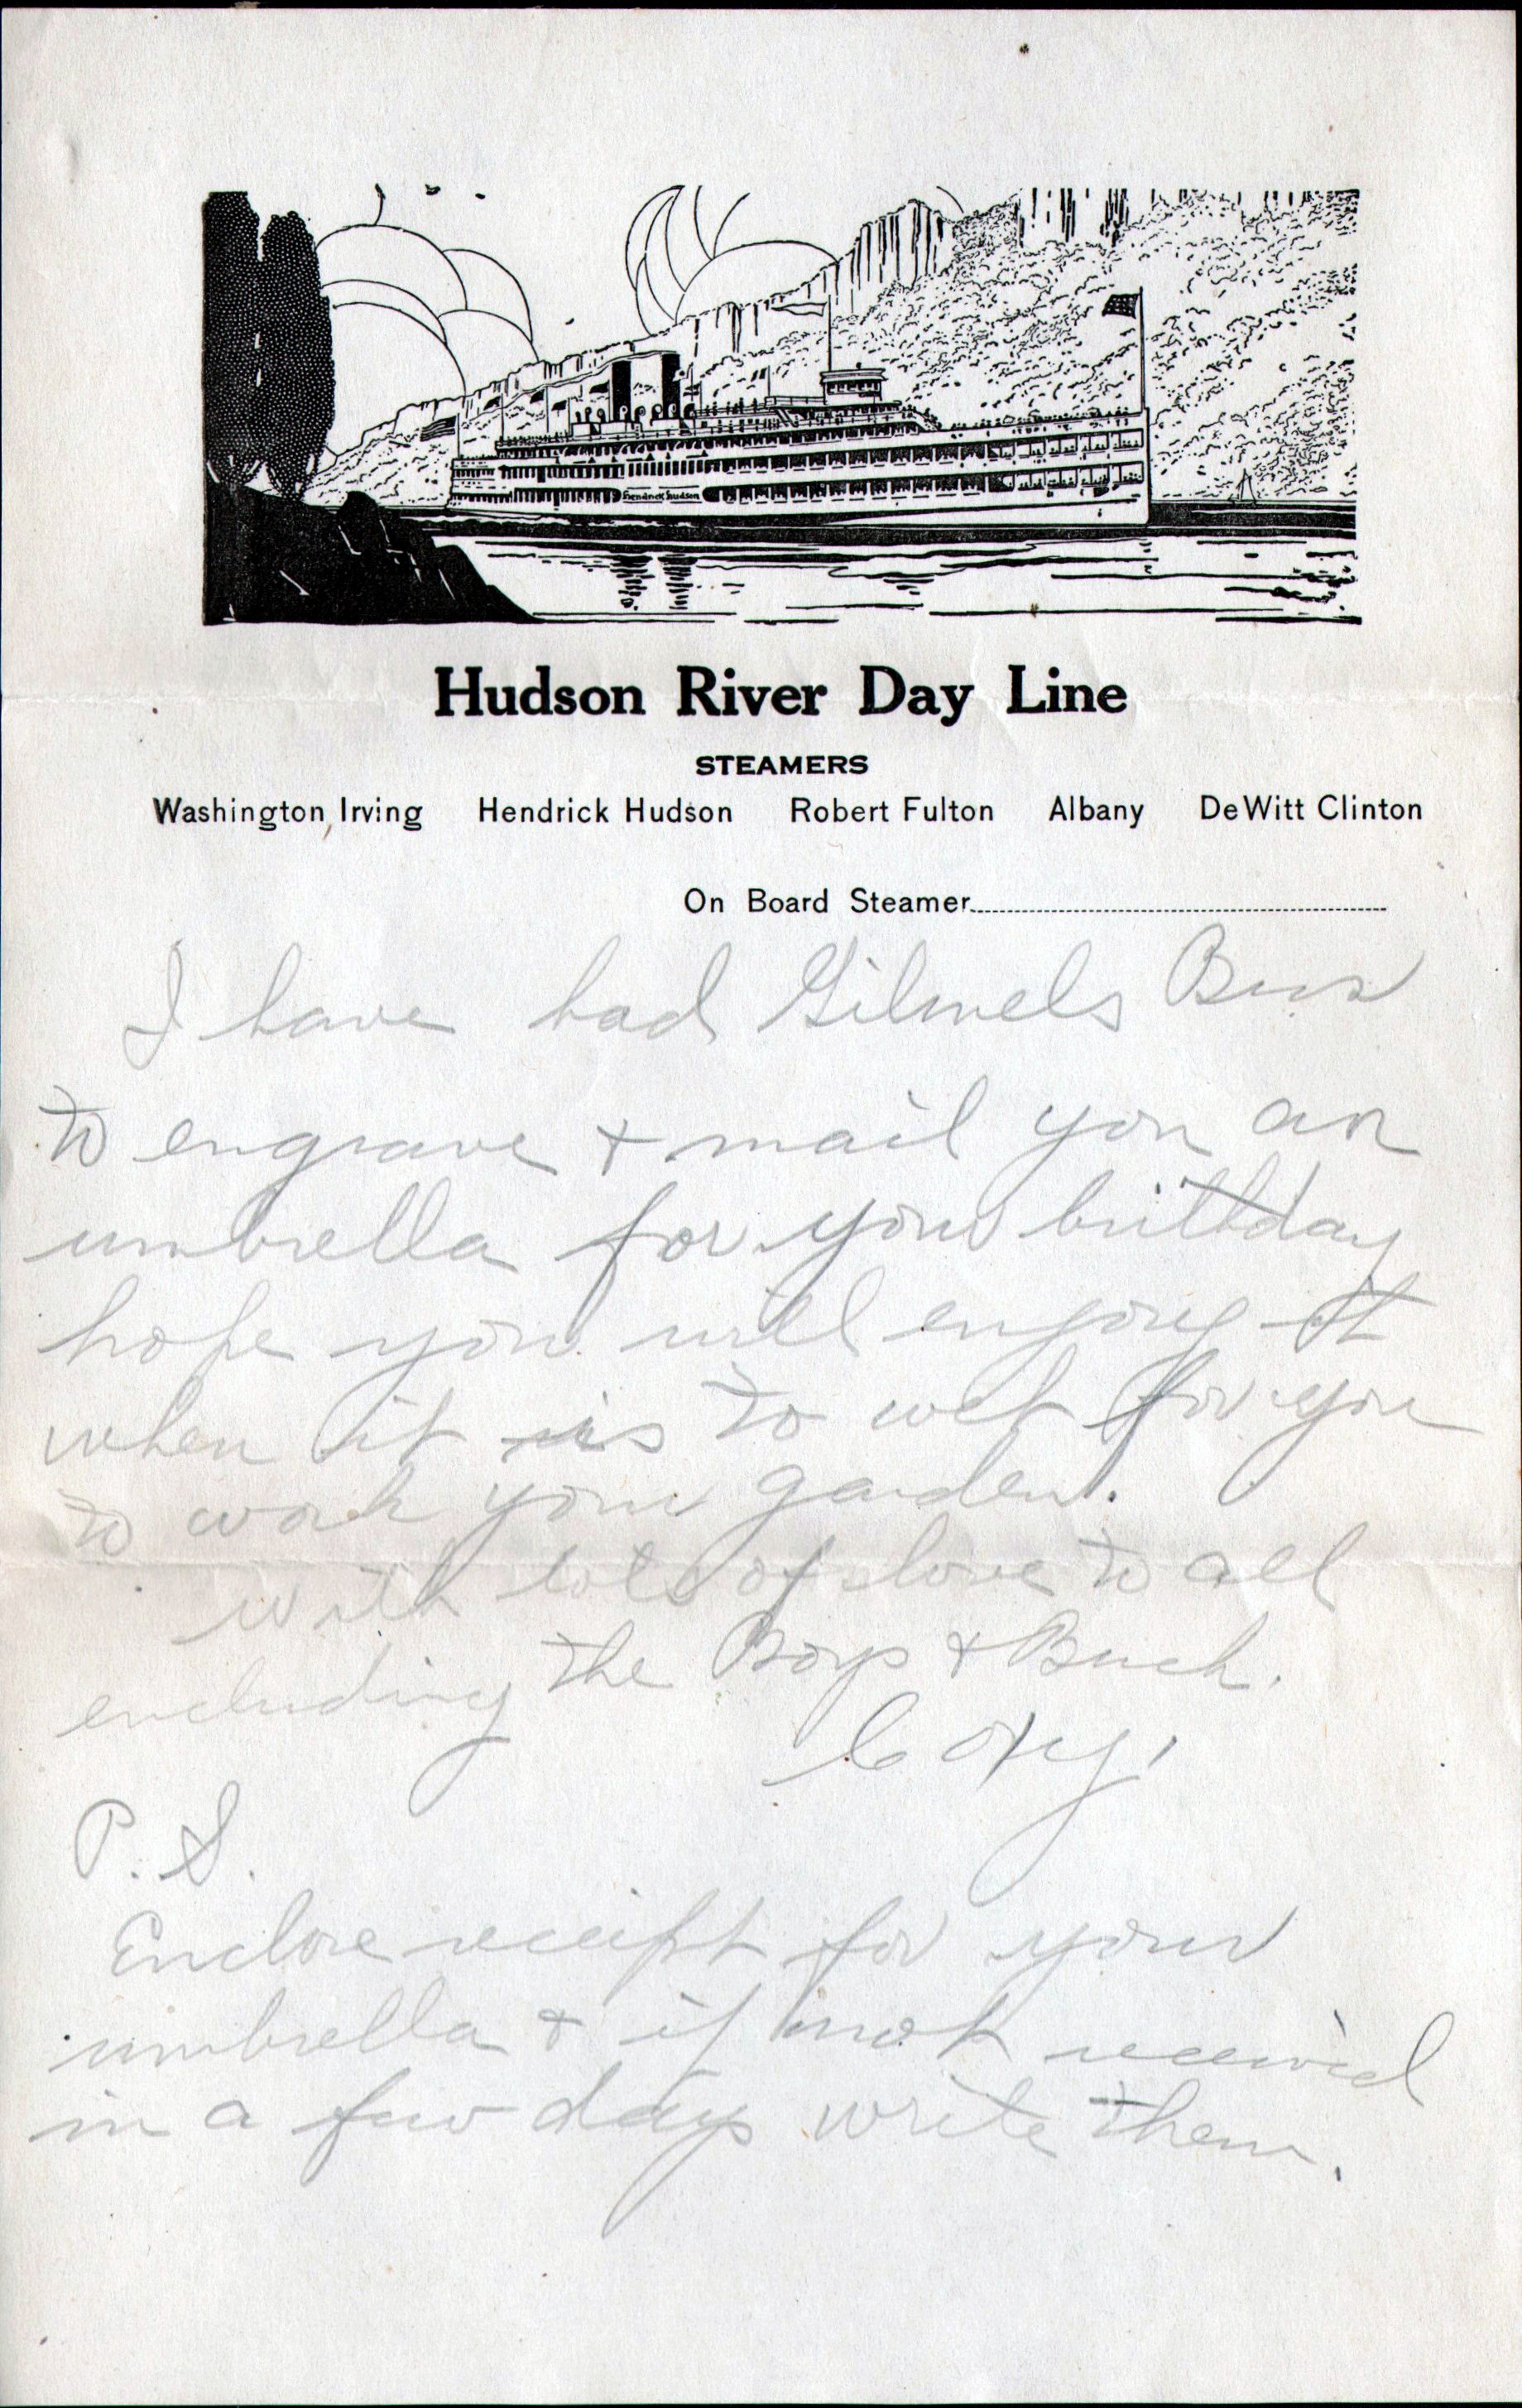 Hendrick Hudson
Hudson River Day Line
STEAMERS
Washington Irving Hendrick Hudson Robert Fulton Albany DeWitt Clinton
On Board Steamer
I have had
to engrave + mail you an
umbrella for your birthday
hope you will enjoy it
when it is to wet for you
to work your garden.
with lots of love to all
the Boys +
P. S.
Enclose receipt for your
umbrella + if not received
in a few days write them.